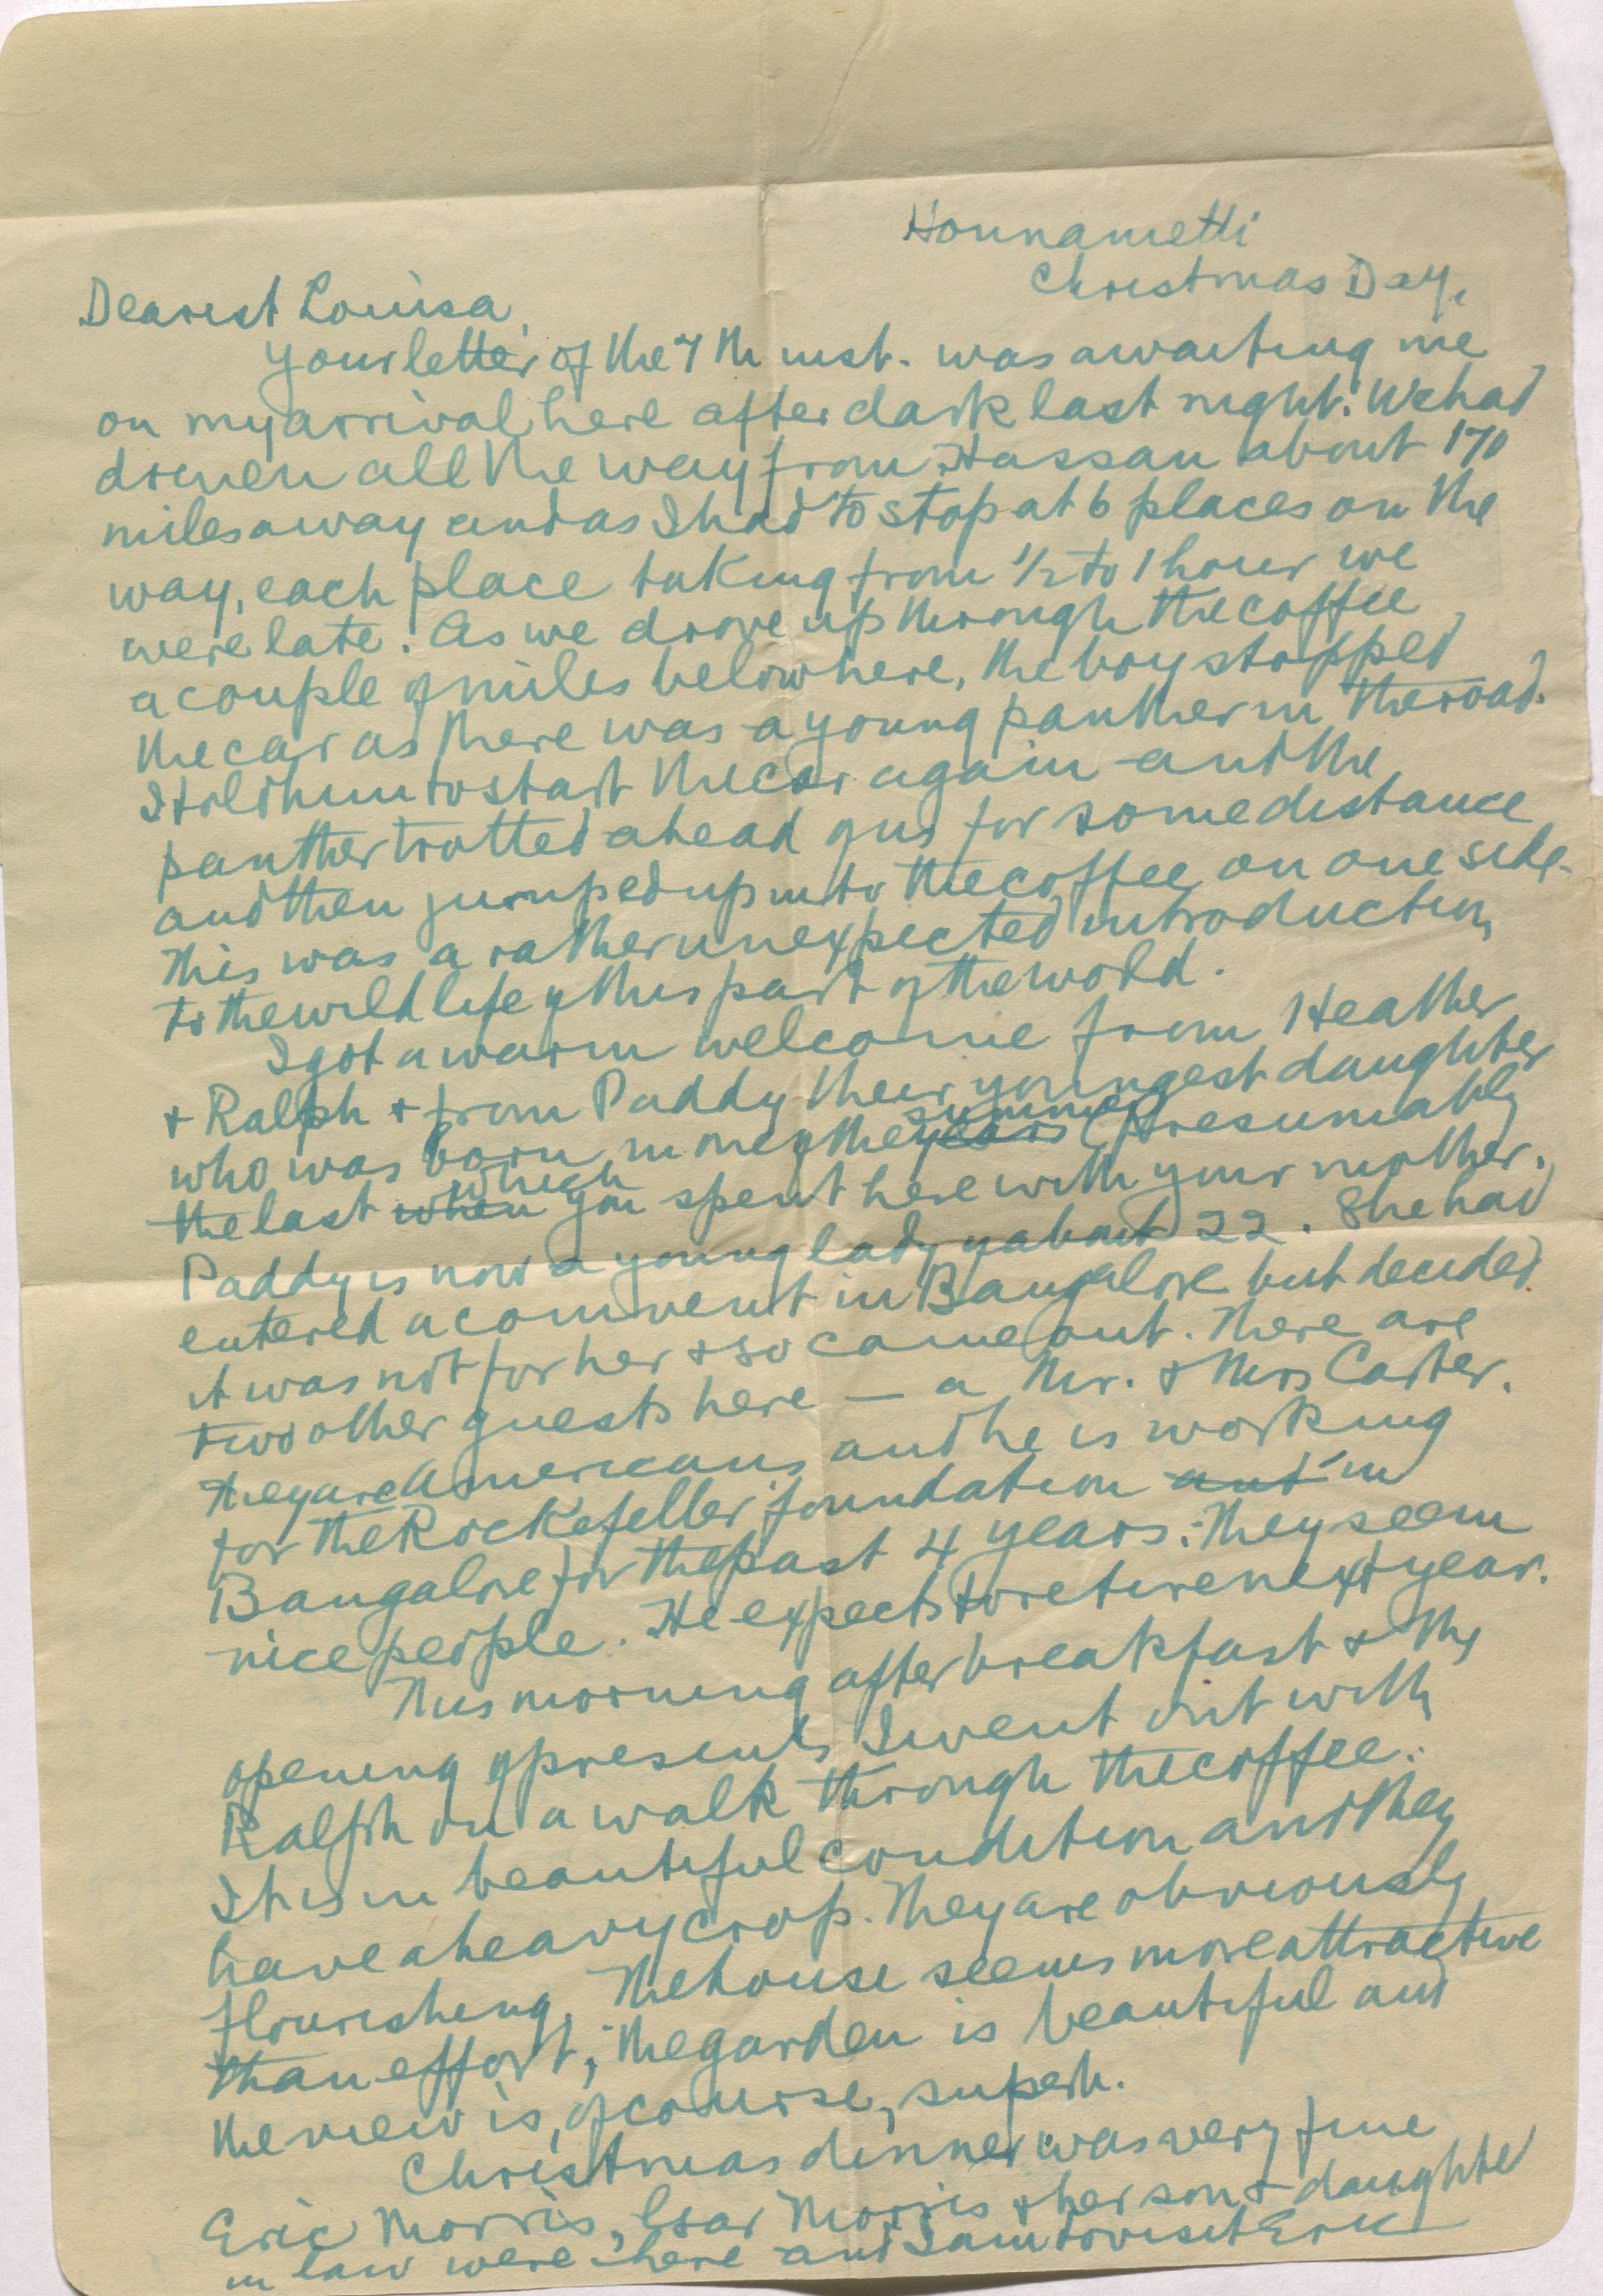 Honnametti
Christmas Day,
Dearest Louisa,
your letter of the 7th inst. was awaiting me
on my arrival here after dark last night. We had
driven all the way from Hassan about 170
miles away and as I had to stop at 6 places on the
way, each place taking from 1/2 to 1 hour we
were late. As we drove up through the coffee
a couple of miles below here, the boy stopped
the car as there was a young panther in the road.
I told him to start the car again and the
panther trotted ahead of us for some distance
and then jumped up into the coffee on one side.
This was a rather unexpected introduction
to the wild life of this part of the world.
I got a warm welcome from Heather
+ Ralph + from Paddy their youngest daughter
who was born in one of the years summers (presumably
the last when which you spent here with your mother.
Paddy is now a young lady of about 22. She had
entered a convent in Bangalore but decided
it was not for her + so came out. There are
two other guests here — a Mr. + Mrs Carter.
They are Americans and he is working
for the Rockefeller foundation and in
Bangalore for the past 4 years. They seem
nice people. He expects to retire next year.
This morning after breakfast + the
opening of presents I went out with
Ralph on a walk through the coffee.
It is in beautiful condition and they
have a heavy crop. They are obviously
flourishing. The house seems more attractive
than effort, the garden is beautiful and
the view is, of course, superb.
Christmas dinner was very fine
Eric Morris, Morris + her son + daughter
in law were here and I am to visit Eric